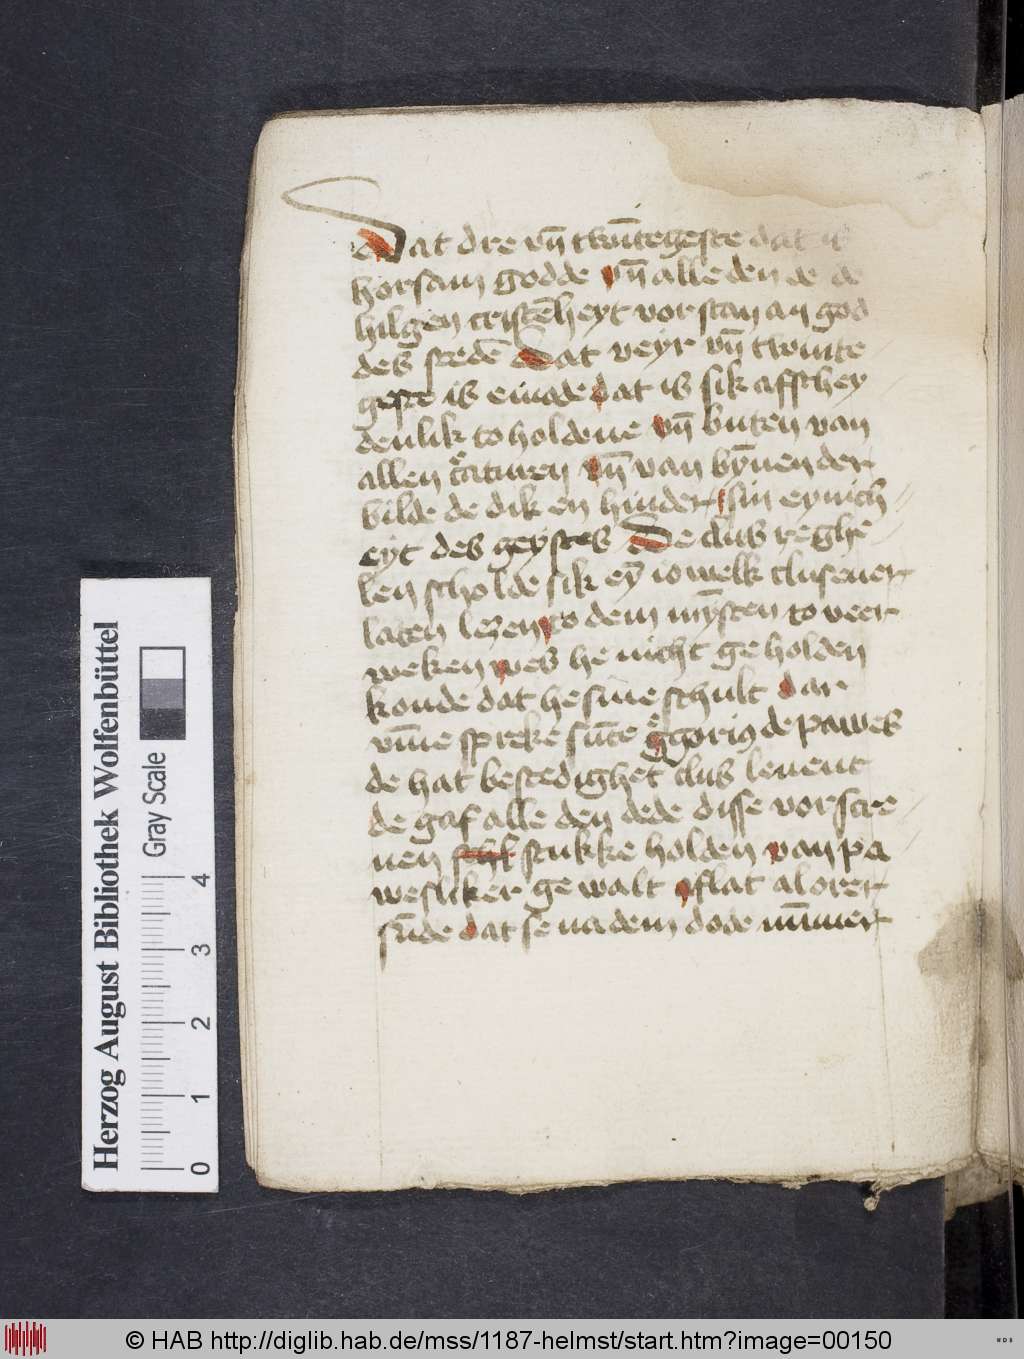 Dat dre vn̄ twīntegeste dat is
horsam godde vn̄ alle den de de
hilgen cristēheyt vorstan an god
des stedē Dat veyr vn̄ twinte
geste is einade dat is sik affschey
denlik to holdene vn̄ buten van
allen creaturen vn̄ van bȳnen der
bilde de dik en hinder sin eynich
eyt des geystes De clus reghe
len scholde sik eȳ io welk clusener
laten lezen to dem mȳsten to veer
weken wes he nicht ge holden
konde dat he sine schult dar
vm̄e spreke sūte gregorius de pawes
de hat bestedighet clus levent
de gaf alle den dede disse vorscre
uen stukke holden van pa
wesliker ge walt aflat al orer
sūde dat se na dem dode nūmer
Herzog August Bibliothek Wolfenbüttel
Gray Scale
0 1 2 3 4
© HAB http://diglib.hab.de/mss/1187-helmst/start.htm?image=00150